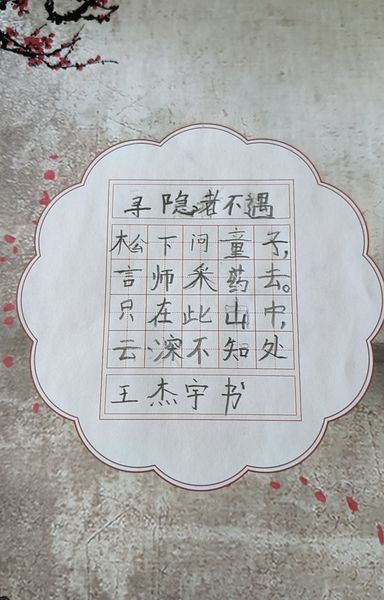 寻隐者不遇
松下问童子，
言师采药去。
只在此山中，
云深不知处
王杰宇书